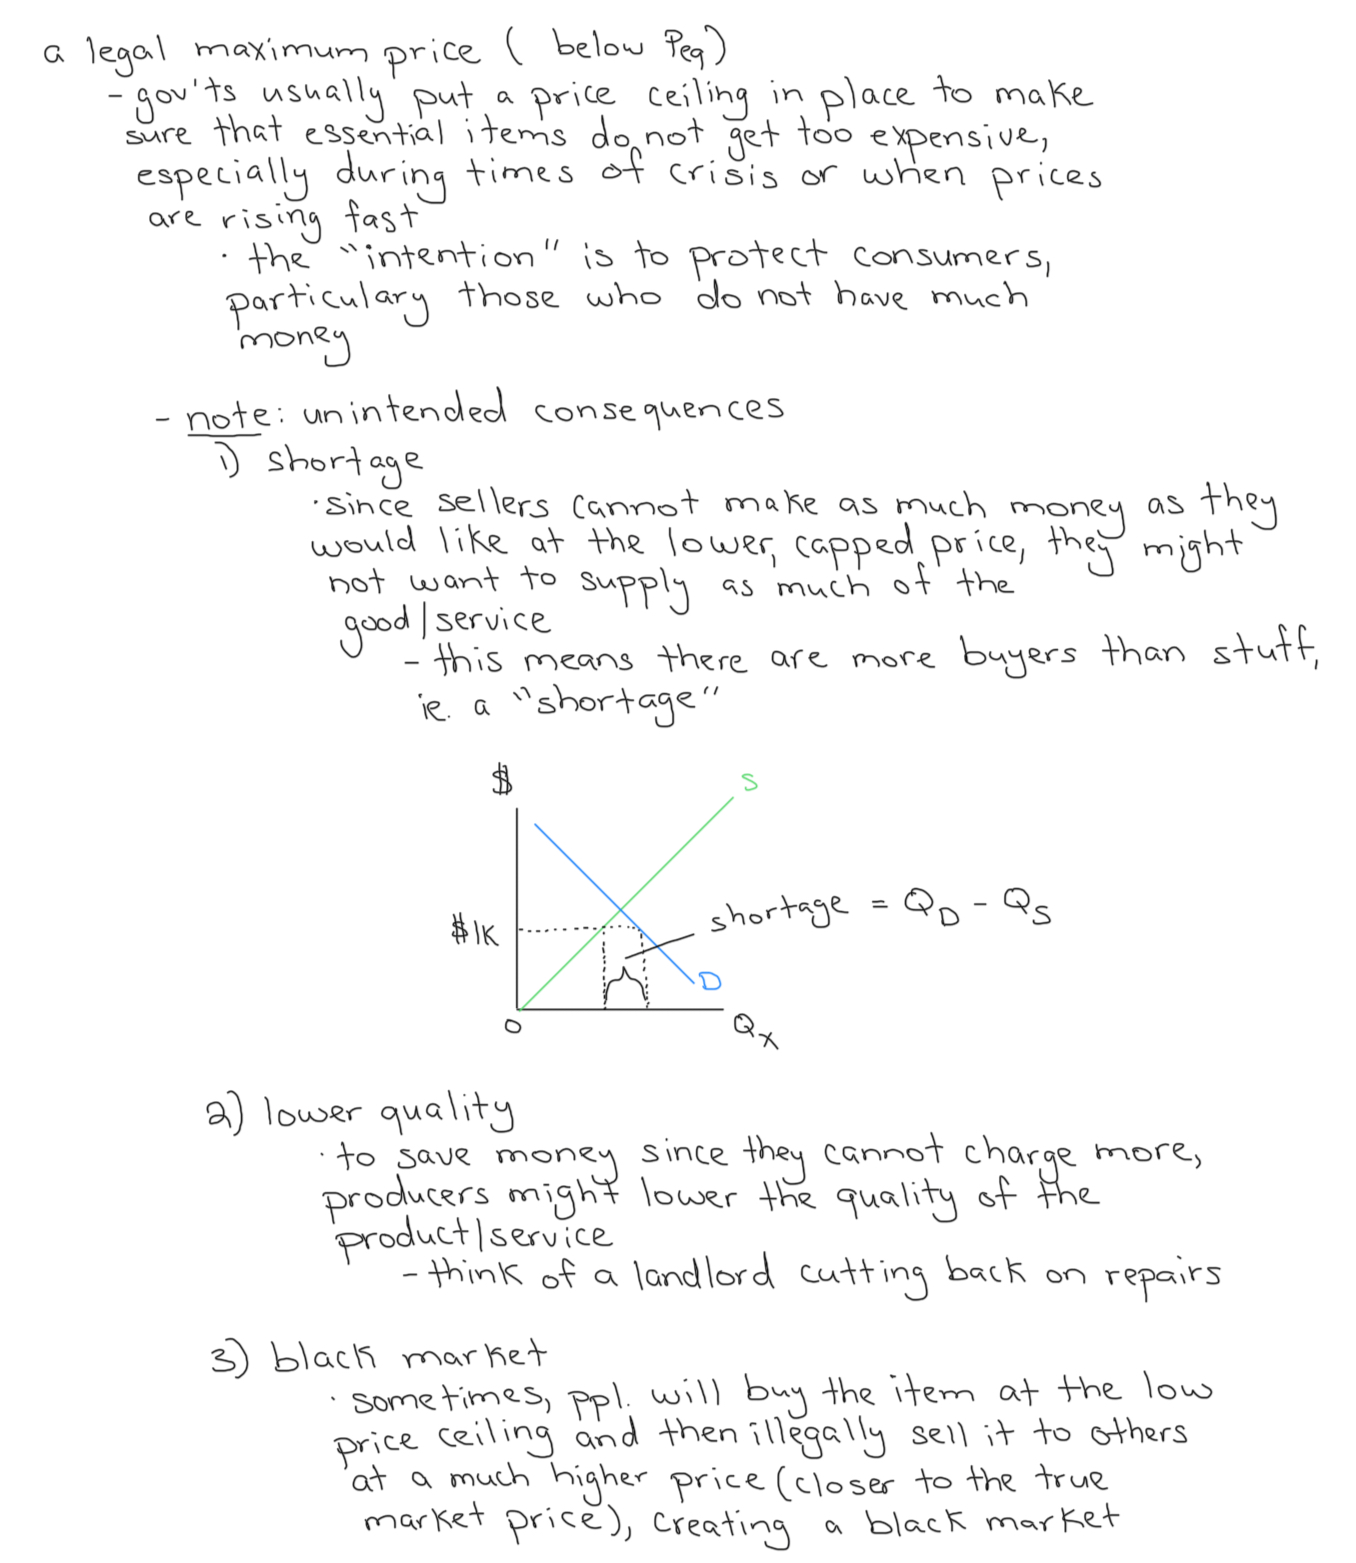 a legal maximum price ( below Peq)
- gov'ts usually put a price ceiling in place to make
sure that essential items do not get too expensive,
especially during times of crisis or when prices
are rising fast
· the "intention" is to protect consumers,
particulary those who do not have much
money
- note: unintended consequences
1) shortage
· since sellers cannot make as much money as they
would like at the lower, capped price, they might
not want to supply as much of the
good/service
- this means there are more buyers than stuff,
ie. a "shortage"
$
S
$1K
shortage = QD - QS
D
0
Qx
2) lower quality
· to save money since they cannot charge more,
producers might lower the quality of the
product/service
- think of a landlord cutting back on repairs
3) black market
· sometimes, ppl. will buy the item at the low
price ceiling and then illegally sell it to others
at a much higher price (closer to the true
market price), creating a black market